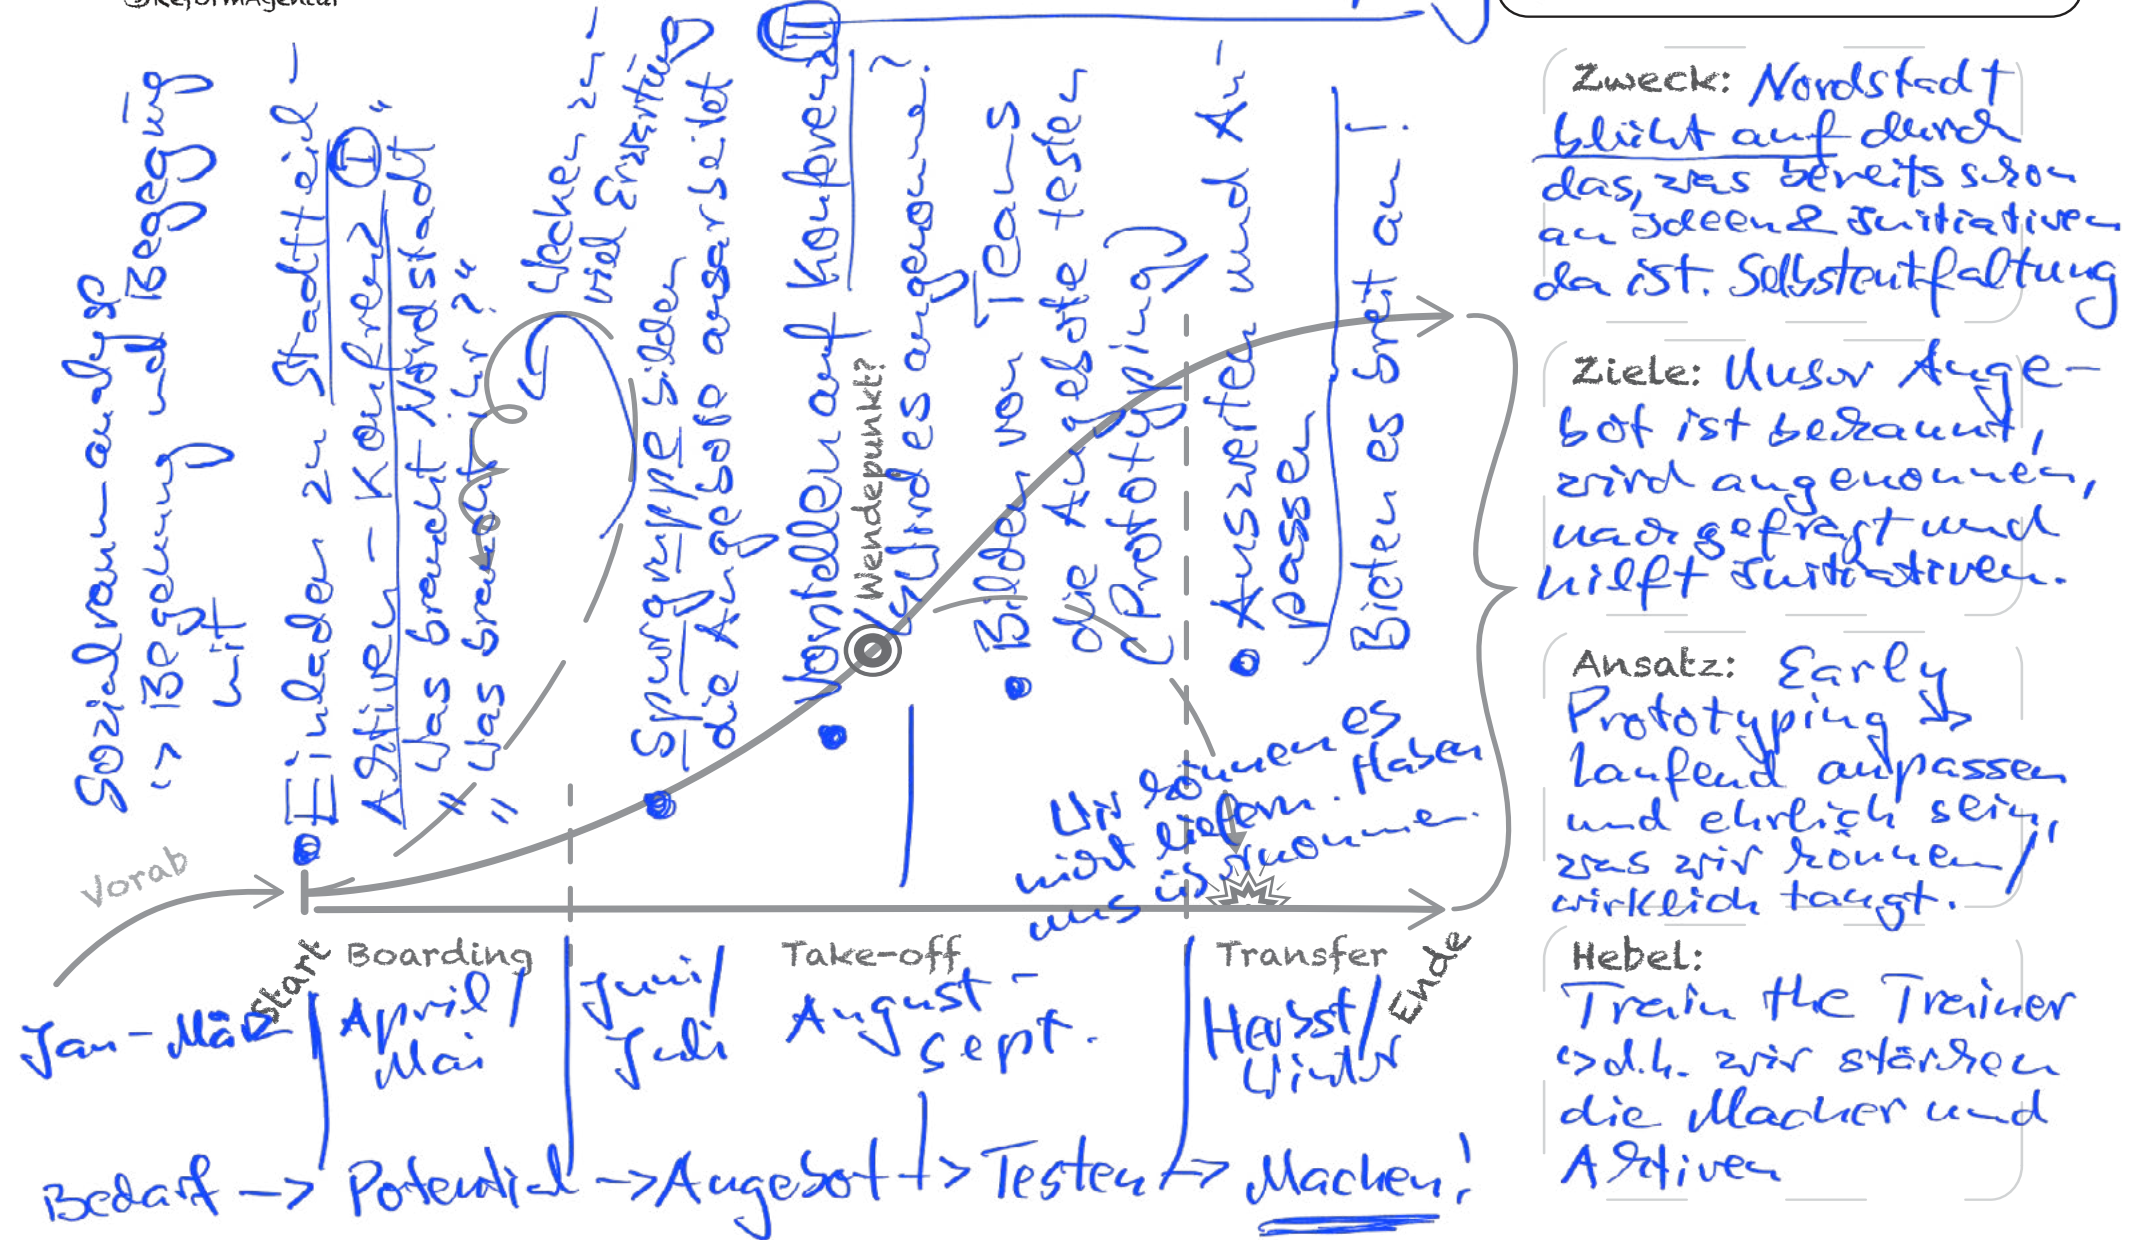 @ReformAgentur
Sozialraum-analyse
↳ Begehung und Begegnung
mit
Einladen zu Stadtteil-
Aktiven-Konfrenz I
"Was braucht Nordstadt"
"Was braucht ihr?"
Wecken zu-
viel Erwartung
Spurgruppe bilden
die Angebote ausarbeitet
II
Vorstellen auf Konferenz
Wendepunkt?
Wird es angenomme?
Bilden von Teams
die Angebote testen
(Prototyping)
Auswerten und An-
passen
Bieten es breit an!
Wir können es
nicht liefern. Haben
uns übernommen.
Vorab
Start
Boarding
Take-off
Transfer
Ende
Jan-März
April/
Mai
Juni/
Juli
August-
Sept.
Herbst/
Winter
Bedarf -> Potential -> Angebot -> Testen -> Machen!
Zweck: Nordstadt
blüht auf durch
das, was bereits schon
an Ideen & Initiativen
da ist. Selbstentfaltung
Ziele: Unser Ange-
bot ist bekannt,
wird angenommen,
nachgefragt und
hilft Initiativen.
Ansatz: Early
Prototyping ↳
laufend anpassen
und ehrlich sein,
was wir können/
wirklich taugt.
Hebel:
Train the Trainer
↳ d.h. wir stärken
die Macher und
Aktiven